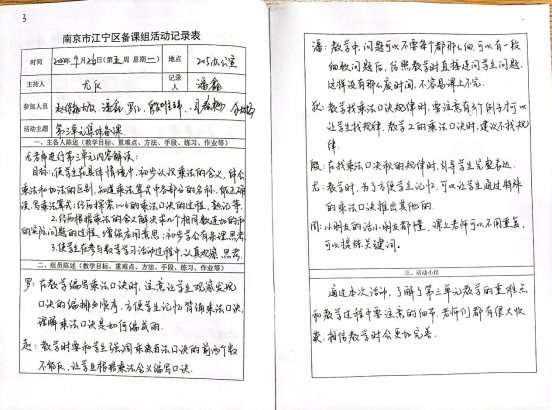 3
南京市江宁区备课组活动记录表
时间 9月26日(第五周 星期一) 地点 205办公室
主持人 尤 记录人 潘鑫
参加人员 潘鑫 罗
活动主题 第三单元集体备课
一、主备人陈述(教学目标、重难点、方法、手段、练习、作业等)
尤老师进行第三单元内容解读:
目标:1.使学生在具体情境中,初步认识乘法的含义,体会
乘法和加法的区别,知道乘法算式中各部分的名称,能正确
读、写乘法算式;经历探索1~6的乘法口诀的过程,熟记等.
2.经历根据乘法的含义解决求几个相同数连加的和
的实际问题的过程,增强应用意识;初步学会有条理思考.
3.使学生在参与数学学习活动过程中,认真观察、思考.
二、组员陈述(教学目标、重难点、方法、手段、练习、作业等)
罗:在教学编写乘法口诀时,注意让学生观察发现
口诀的编排和顺序,方便学生记忆背诵乘法口诀,
理解乘法口诀是如何编成的.
赵:教学时要和学生强调乘法口诀的前两个数
不能反,让学生根据乘法含义编写口诀.
潘:教学中,问题可以不要每个都那么细,可以有一般
细致问题后,依照教学时直接追问学生问题.
这样没有那么废时间,不容易课上不完.
教学乘法口诀规律时,要注意有多个例子才可以
让学生找规律,教学2的乘法口诀时,建议不找规
律.
殷:在找乘法口诀的规律时,引导学生完整表达.
尤:教学时,为了方便学生记忆,可以让学生通过特殊
的乘法口诀推出其他的.
周:小朋友的话小朋友都懂,课上老师可以不用重复,
可以提炼关键词.
三、活动小结
通过本次活动,了解了第三单元教学的重难点
和教学过程中要注意的细节,老师们都有很大收
获,相信教学时会更加完善.